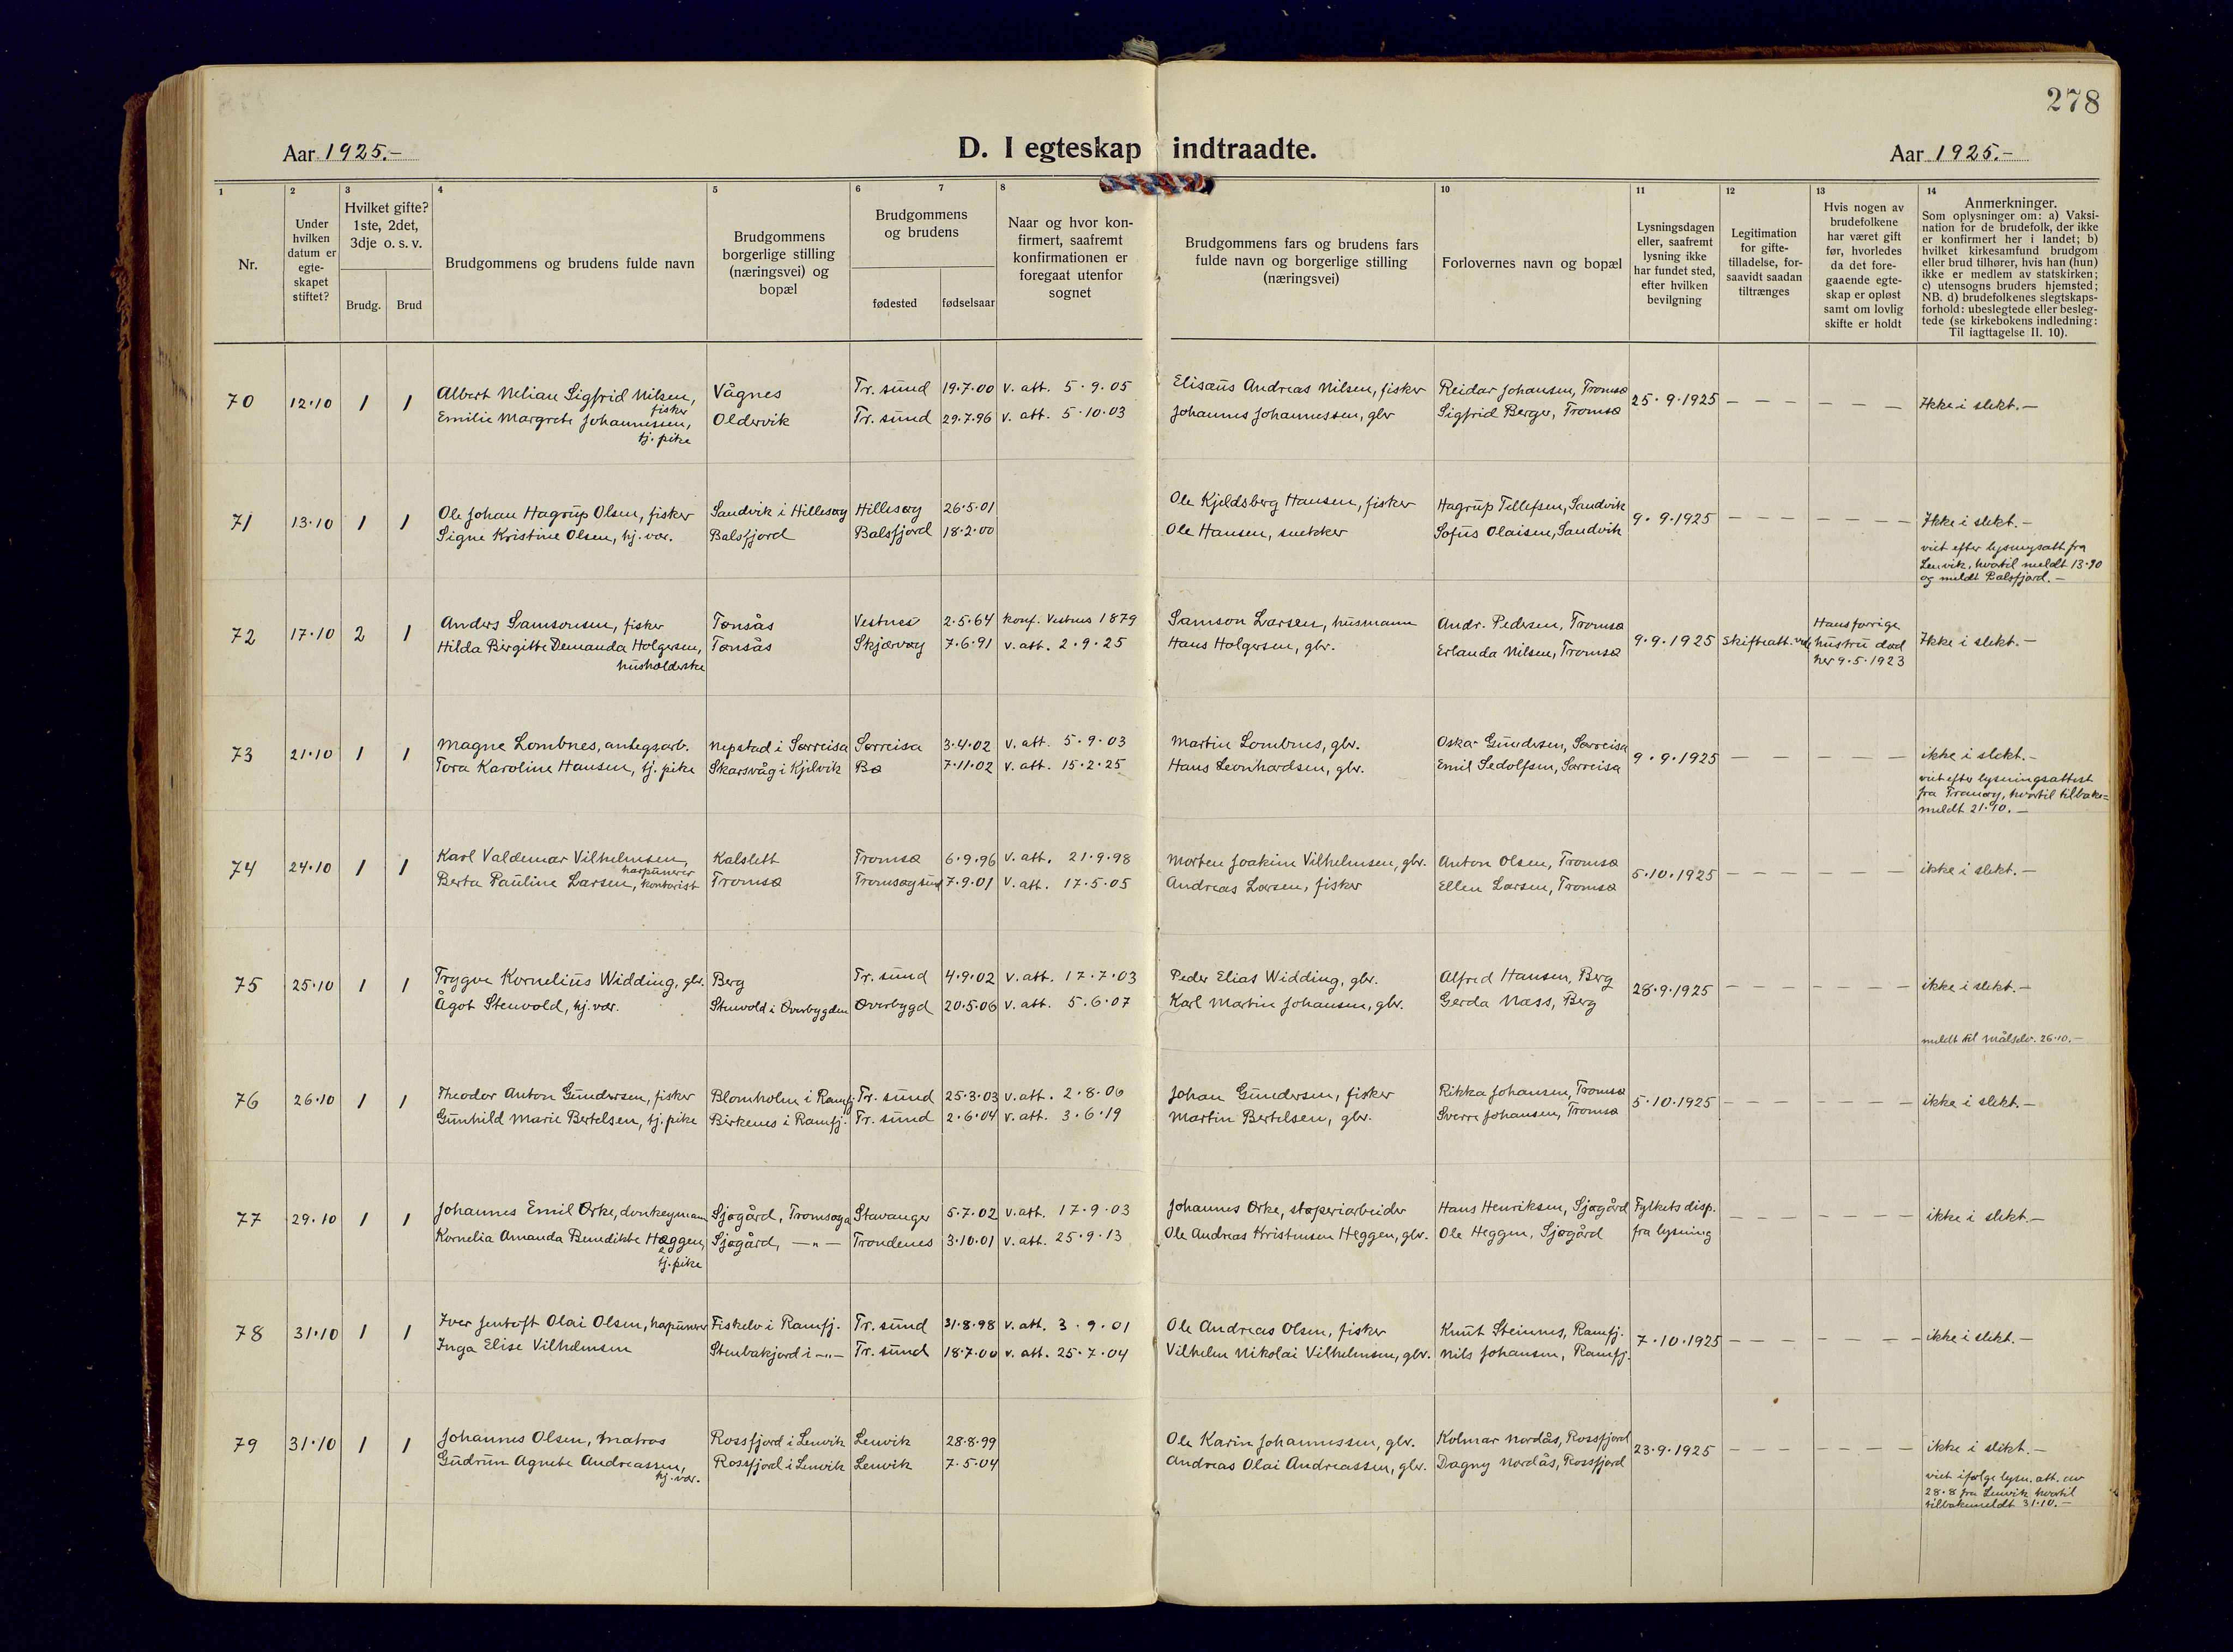 278
Aar 1925.-
D. I egteskap indtraadte.
Aar 1925.-
1 2 3 4 5 6 7 8 10 11 12 13 14
Nr.
Under hvilken datum er egte-skapet stiftet?
Hvilket gifte? 1ste, 2det, 3dje o. s. v.
Brudg. Brud
Brudgommens og brudens fulde navn
Brudgommens borgerlige stilling (næringsvei) og bopæl
Brudgommens og brudens
fødested fødselsaar
Naar og hvor kon-firmert, saafremt konfirmationen er foregaat utenfor sognet
Brudgommens fars og brudens fars fulde navn og borgerlige stilling (næringsvei)
Forlovernes navn og bopæl
Lysningsdagen eller, saafremt lysning ikke har fundet sted, efter hvilken bevilgning
Legitimation for gifte-tilladelse, for-saavidt saadan tiltrænges
Hvis nogen av brudefolkene har været gift før, hvorledes da det fore-gaaende egte-skap er opløst samt om lovlig skifte er holdt
Anmerkninger.
Som oplysninger om: a) Vaksi-nation for de brudefolk, der ikke er konfirmert her i landet; b) hvilket kirkesamfund brudgom eller brud tilhører, hvis han (hun) ikke er medlem av statskirken; c) utensogns bruders hjemsted; NB. d) brudefolkenes slegtskaps-forhold: ubeslegtede eller besleg-tede (se kirkebokens indledning: Til iagttagelse II. 10).
70 12.10 1 1 Albert Nelian Sigfrid Nilsen, fisker Vågnes Tr. sund 19.7.00 v. att. 5.9.05 Elisæus Andreas Nilsen, fisker Reidar Johansen, Tromsø 25.9.1925 – – – – – – Ikke i slekt.–
Emilie Margrete Johannessen, tj. pike Oldervik Tr. sund 29.7.96 v. att. 5.10.03 Johannes Johannessen, gbr Sigfrid Berger, Tromsø
71 13.10 1 1 Ole Johan Hagrup Olsen, fisker Sandvik i Hillesøy Hillesøy 26.5.01 Ole Kjeldsberg Hansen, fisker Hagrup Tellefsen, Sandvik 9.9.1925 – – – – – – – Ikke i slekt.–
Signe Kristine Olsen, hj. vær. Balsfjord Balsfjord 18.2.00 Ole Hansen, snekker Sofus Olaisen, Sandvik
viet efter lysningsatt fra
Lenvik, hvortil meldt 13.10
og meldt Balsfjord.–
72 17.10 2 1 Anders Samsonsen, fisker Tønsås Vestnes 2.5.64 konf. Vestnes 1879 Samson Larsen, husmann Andr. Pedersen, Tromsø 9.9.1925 Skifteatt. Hans forrige hustru død her 9.5.1923 Ikke i slekt.–
Hilda Bergitte Demanda Holgersen, husholderske Tønsås Skjærvøy 7.6.91 v. att. 2.9.25 Hans Holgersen, gbr. Erlanda Nilsen, Tromsø
73 21.10 1 1 Magne Lombnes, anlegsarb. Nepstad i Sørreisa Sørreisa 3.4.02 v. att. 5.9.03 Martin Lombnes, gbr. Oskar Gundersen, Sørreisa 9.9.1925 – – – – – ikke i slekt.–
Tora Karoline Hansen, tj. pike Skarsvåg i Kjelvik Bø 7.11.02 v. att. 15.2.25 Hans Leonhardsen, gbr. Emil Sedolfsen, Sørreisa
viet efter lysningsattest
fra Tranøy, hvortil tilbake=
meldt 21.10.–
74 24.10 1 1 Karl Valdemar Vilhelmsen, harpunerer Kalslett Tromsø 6.9.96 v. att. 21.9.98 Morten Joakim Vilhelmsen, gbr. Anton Olsen, Tromsø 5.10.1925 – – – – – – ikke i slekt.–
Berta Pauline Larsen, kontorist Tromsø Tromsøysund 7.9.01 v. att. 17.5.05 Andreas Larsen, fisker Ellen Larsen, Tromsø
75 25.10 1 1 Trygve Kornelius Widding, gbr. Berg Tr. sund 4.9.02 v. att. 17.7.03 Peder Elias Widding, gbr. Alfred Hansen, Berg 28.9.1925 – – – – – – – ikke i slekt.–
Ågot Stenvold, hj. vær. Stenvold i Øverbygden Øverbygd 20.5.06 v. att. 5.6.07 Karl Martin Johansen, gbr. Gerda Næss, Berg
meldt til Målselv. 26.10.–
76 26.10 1 1 Theodor Anton Gundersen, fisker Blomholm i Ramfj. Tr. sund 25.3.03 v. att. 2.8.06 Johan Gundersen, fisker Rikka Johansen, Tromsø 5.10.1925 – – – – – – – ikke i slekt.–
Gunhild Marie Bertelsen, tj. pike Birkenes i Ramfj. Tr. sund 2.6.04 v. att. 3.6.19 Martin Bertelsen, gbr. Sverre Johansen, Tromsø
77 29.10 1 1 Johannes Emil Orke, donkeymann Sjøgård, Tromsøya Stavanger 5.7.02 v. att. 17.9.03 Johannes Orke, støperiarbeider Hans Henriksen, Sjøgård Fylkets disp. fra lysning – – – – – – – ikke i slekt.–
Kornelia Amanda Benedikte Hæggen, tj. pike Sjøgård, –"– Trondenes 3.10.01 v. att. 25.9.13 Ole Andreas Kristensen Heggen, gbr. Ole Heggen, Sjøgård
78 31.10 1 1 Iver Jentoft Olai Olsen, hapunerer Fiskelv i Ramfj. Tr. sund 31.8.98 v. att. 3.9.01 Ole Andreas Olsen, fisker Knut Steinnes, Ramfj. 7.10.1925 – – – – – – – ikke i slekt.–
Inga Elise Vilhelmsen Stenbakjord i –"– Tr. sund 18.7.00 v. att. 25.7.04 Vilhelm Nikolai Vilhelmsen, gbr. Nils Johansen, Ramfj.
79 31.10 1 1 Johannes Olsen, matros Rossfjord i Lenvik Lenvik 28.8.99 Ole Karin Johannessen, gbr. Kolmar Nordås, Rossfjord 23.9.1925 – – – – – – – ikke i slekt.–
Gudrun Agnete Andreassen, hj. vær. Rossfjord i Lenvik Lenvik 7.5.04 Andreas Olai Andreassen, gbr. Dagny Nordås, Rossfjord
viet ifølge lysn. att. av
28.8 fra Lenvik, hvortil
tilbakemeldt 31.10.–